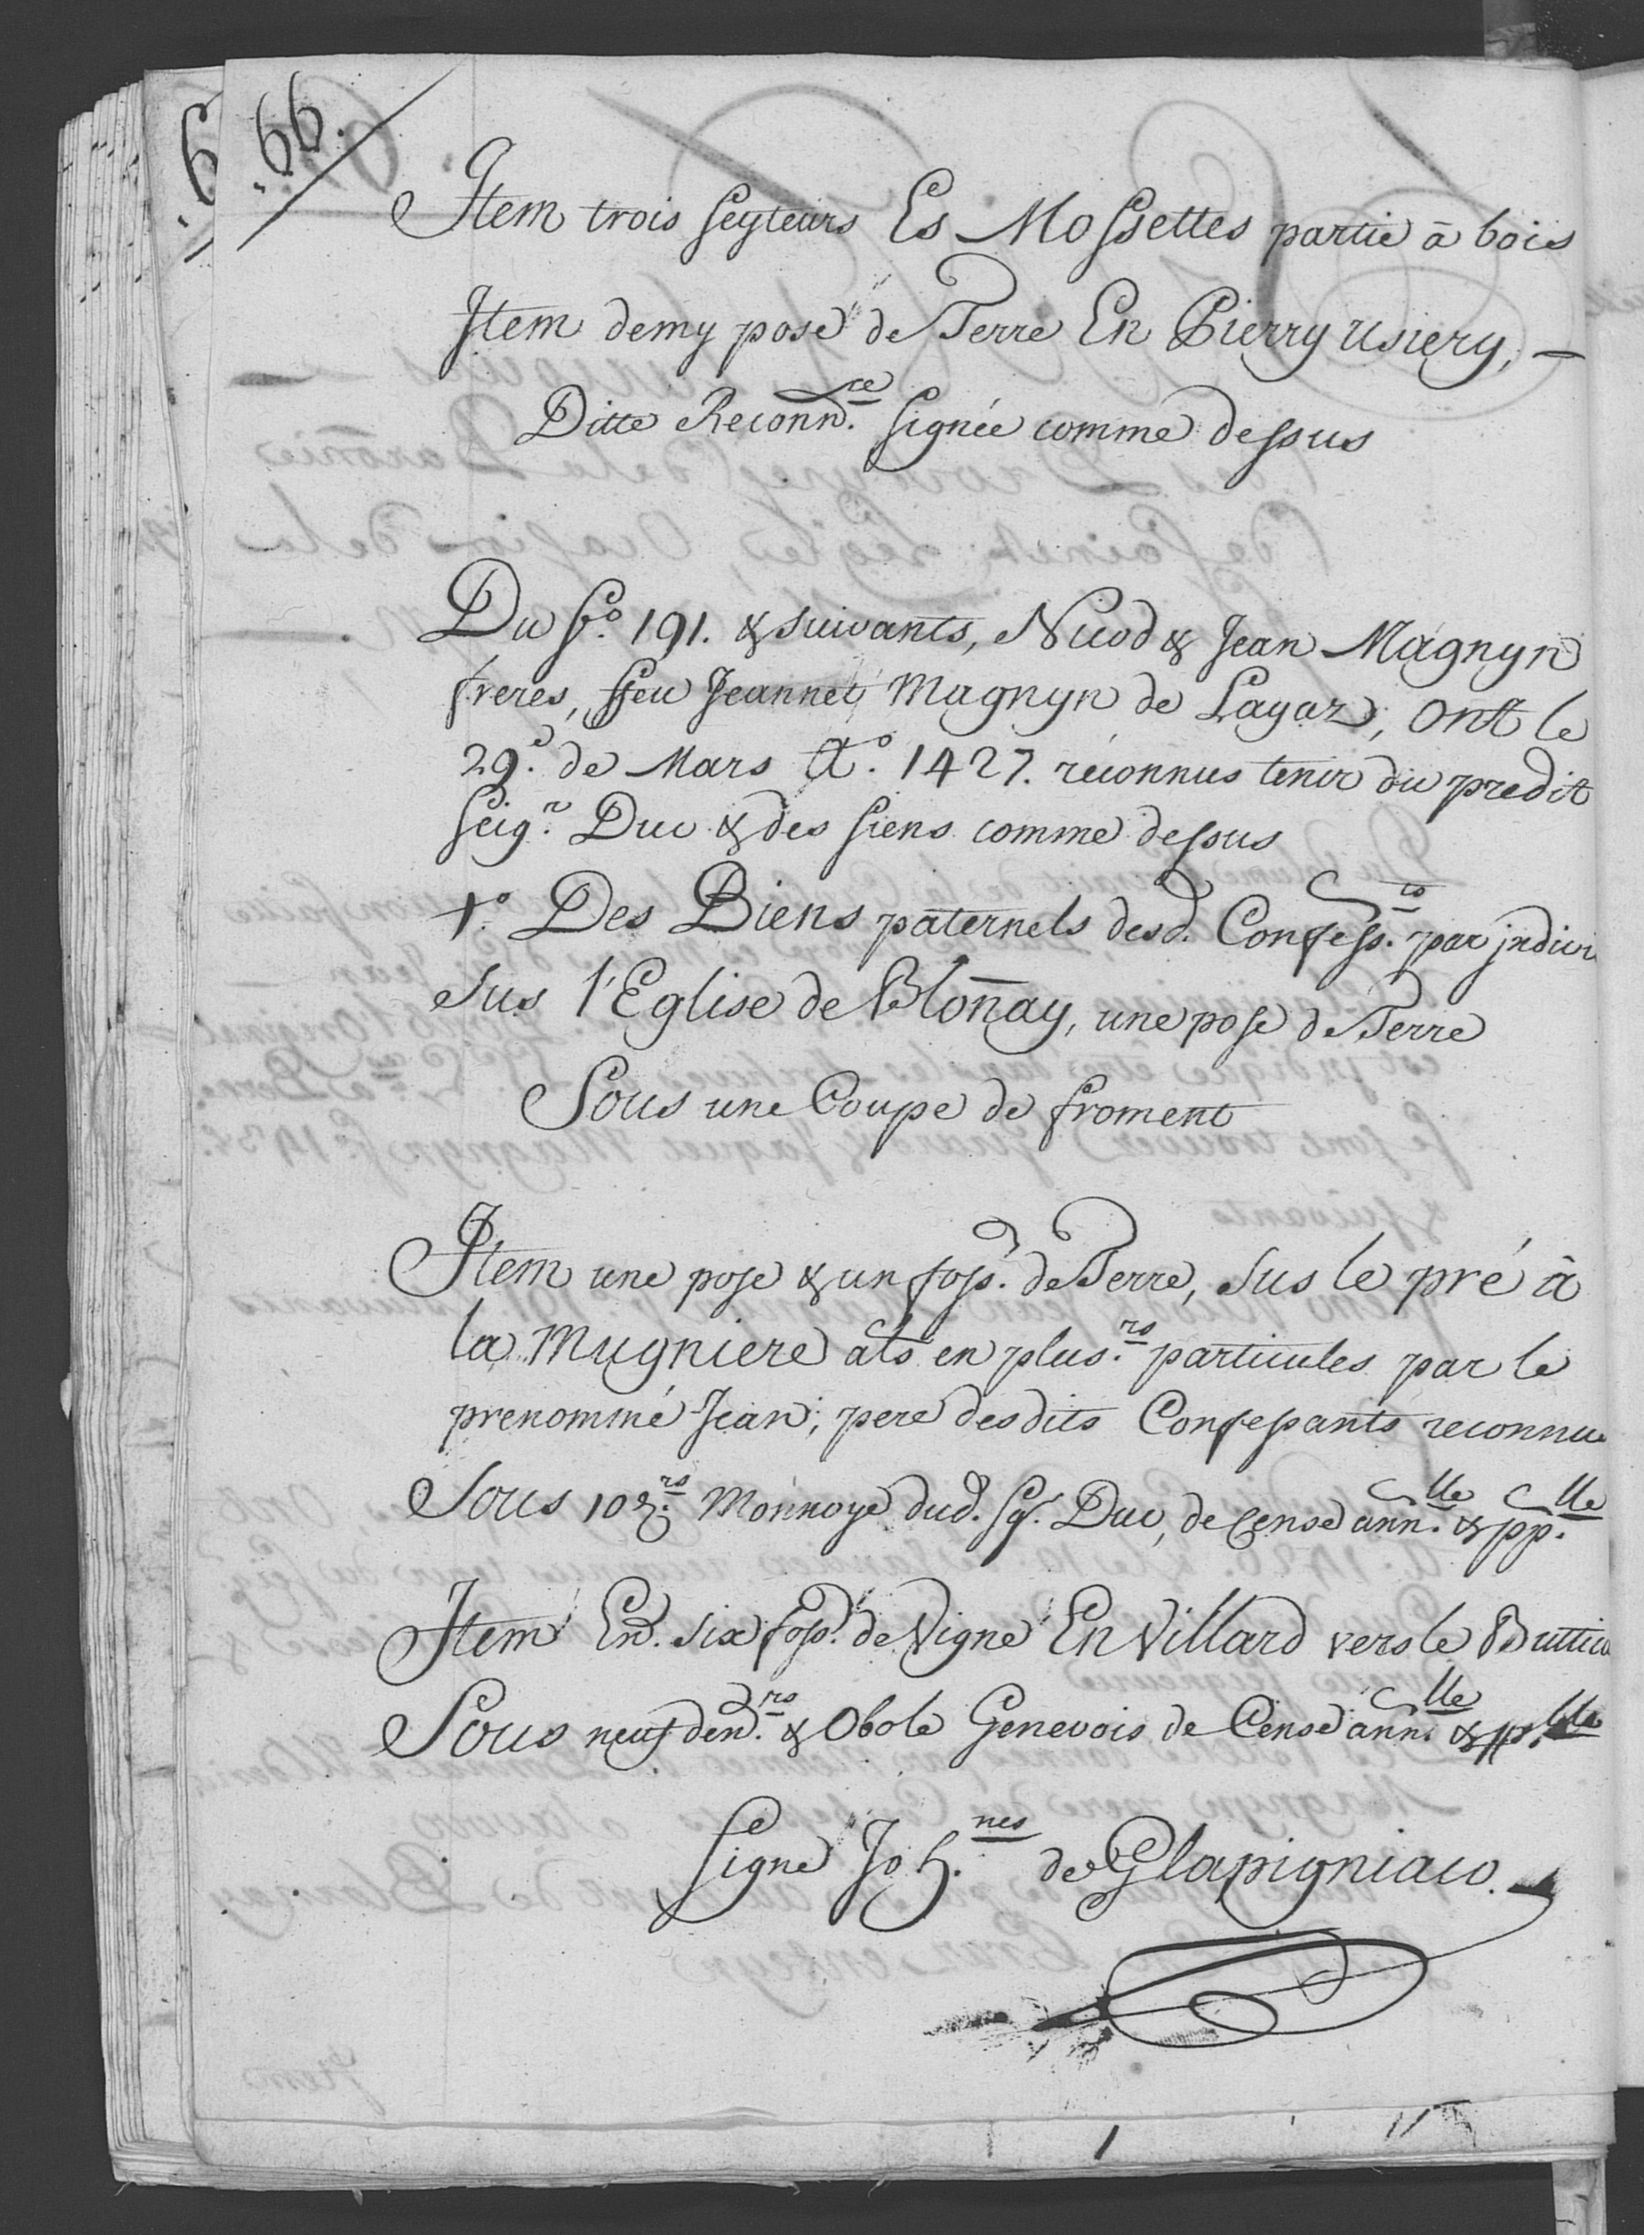 66.
Item trois seyteurs Es Mossettes partie à bois
Item demy pose de Terre En Pierry usiery, —
Ditte Reconn.ce signée comme dessus
Du f.o 191. & suivants, Nicod & Jean Magnyn
freres, ffeu Jeannet Magnyn de Layaz, ont le
29.e de Mars A.o 1427. reconnus tenir du predit
Seig.r Duc & des siens comme dessus
1.o Des Biens paternels desd. Confess.ts par jndivi
Sus l'Eglise de Bloñay, une pose de Terre
Sous une Coupe de froment
Item une pose & un foss. de Terre, Sus le pré à
la Mugniere als en plus.rs particules par le
prenommé Jean, pere desdits Confessants reconnue
Sous 10 d.rs Monnoye dud. Sg.r Duc, de Cense ann.lle & pp.lle
Item En. six foss. de Vigne En Villard vers le
Sous neuf den.rs & Obole Genevois de Cense ann.lle & pp.lle
Signé Joh.nes de Glapigniaco.